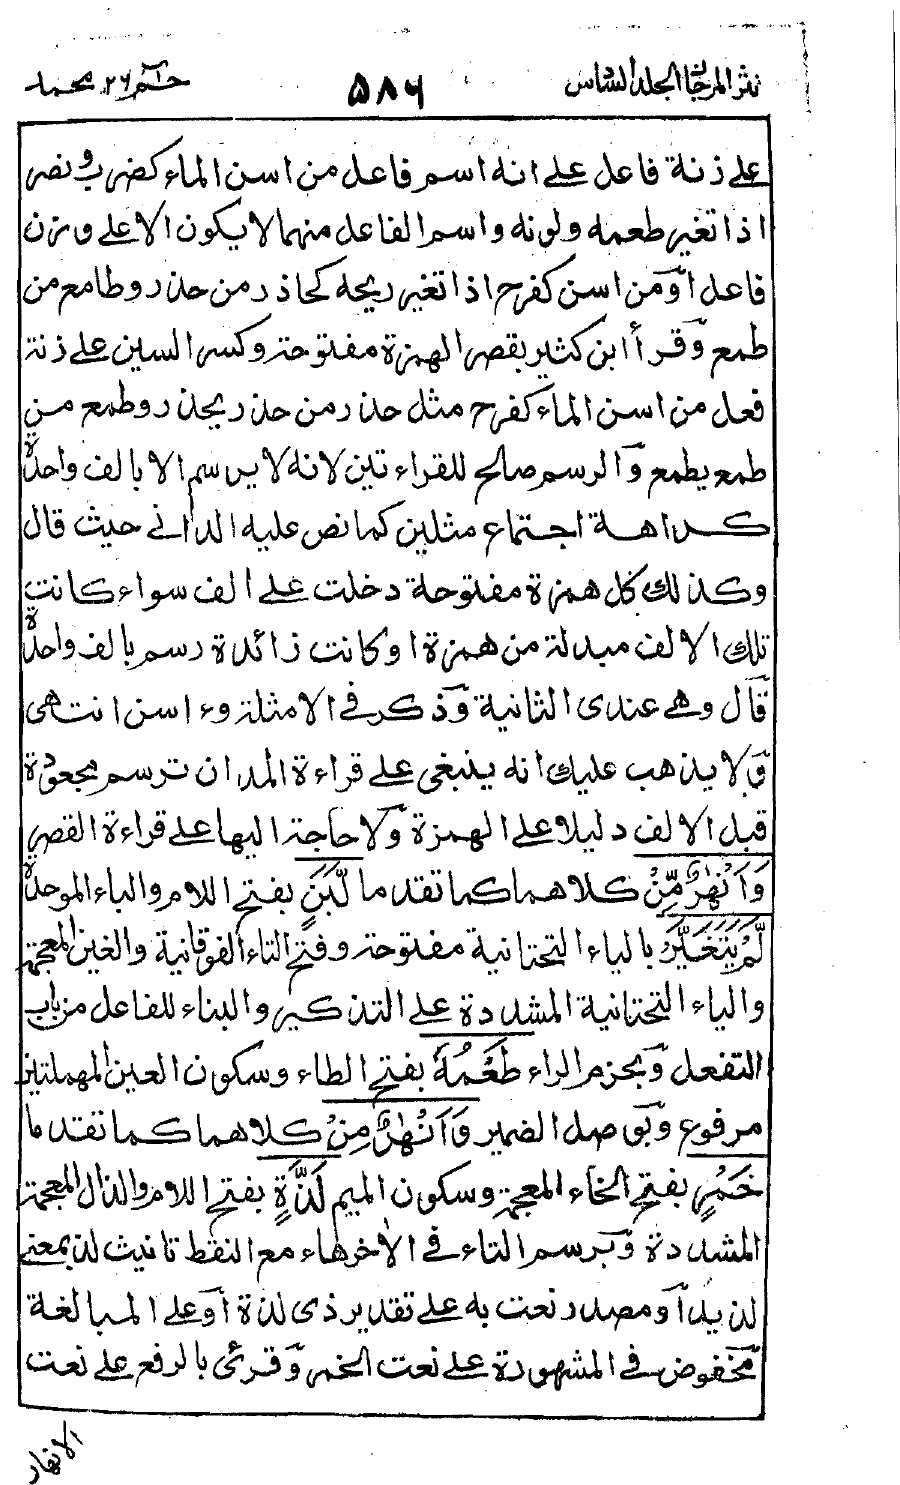 نثر المرجان المجلد السادس
٥٨٦
حٰم ٢٦ محمد
على زنة فاعل على انه اسم فاعل من اسن الماء كضرب ونصر
اذا تغير طعمه ولونه واسم الفاعل منهما لا يكون الا على وزن
فاعل او من اسن كفرح اذا تغير ريحه كحاذر من حذر وطامع من
طمع وقرأ ابن كثير بقصر الهمزة مفتوحة وكسر السين على زنة
فعل من اسن الماء كفرح مثل حذر من حذر يحذر وطمع من
طمع يطمع والرسم صالح للقراءتين لانه لا يرسم الا بالف واحدة
كراهة اجتماع مثلين كما نص عليه الداني حيث قال
وكذلك كل همزة مفتوحة دخلت على الف سواء كانت
تلك الالف مبدلة من همزة او كانت زائدة رسم بالف واحدة
قال وهي عندى الثانية وذكر في الامثلة وء اسن انتهى
ولا يذهب عليك انه ينبغى على قراءة المد ان ترسم مجعودة
قبل الالف دليلا على الهمزة ولا حاجة اليها على قراءة القصر
وَاَنْهٰرٌ مِّنْ كلاهما كما تقدما لَّبَنٍ بفتح اللام والباء الموحدة
لَّمْ يَتَغَيَّرْ بالياء التحتانية مفتوحة وفتح التاء الفوقانية والغين المعجمة
والياء التحتانية المشددة على التذكير والبناء للفاعل من باب
التفعل وبجزم الراء طَعْمُهٗ بفتح الطاء وسكون العين المهملتين
مرفوع وبوصل الضمير وَاَنْهٰرٌ مِّنْ كلاهما كما تقدما
خَمْرٍ بفتح الخاء المعجمة وسكون الميم لَذَّةٍ بفتح اللام والذال المعجمة
المشددة وبرسم التاء في الاخرهاء مع النقط تانيث لذ بمعنى
لذيذ او مصدر نعت به على تقدير ذى لذة او على المبالغة
مخفوض في المشهورة على نعت الخمر وقرئ بالرفع على نعت
الانهار